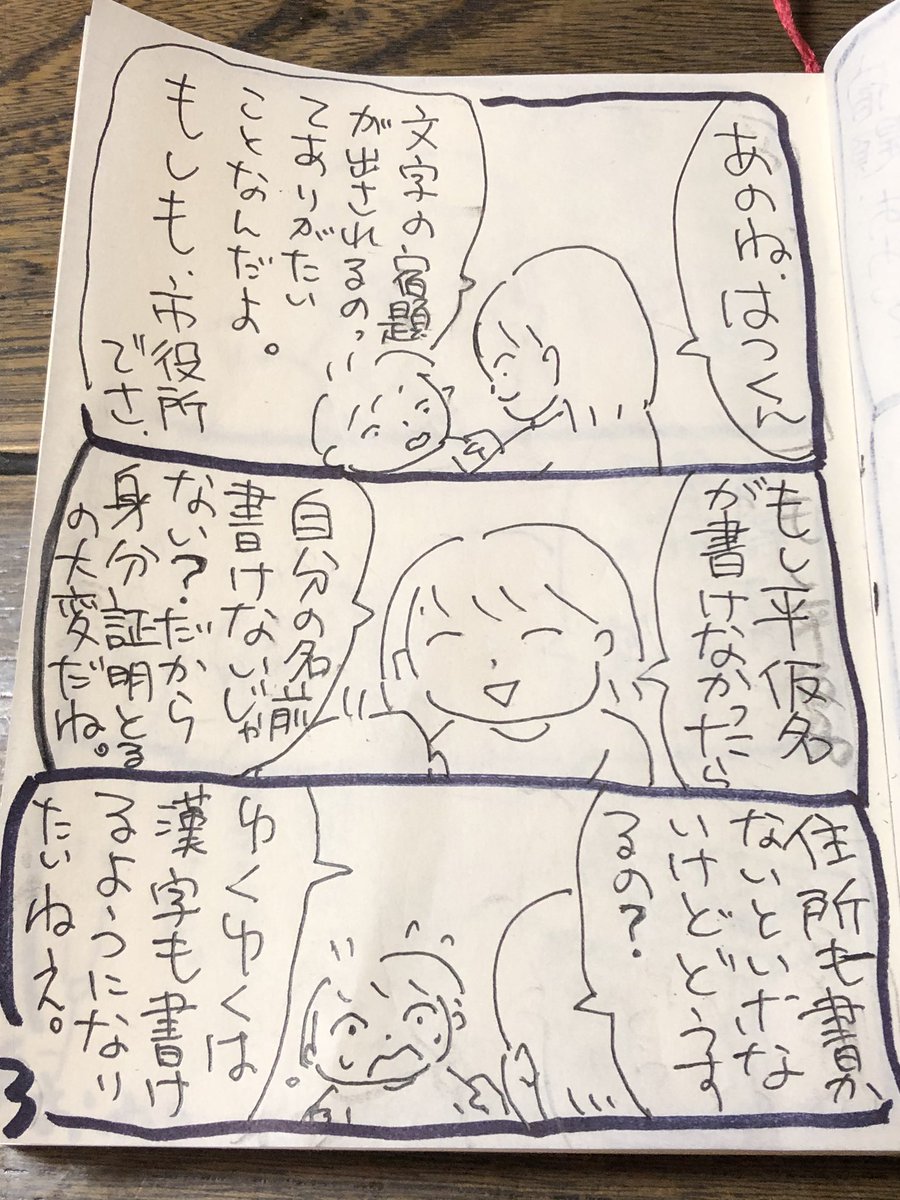 あのね、はっくん
文字の宿題
が出されるのっ
てありがたい
ことなんだよ。
もしも、市役所
でさ、
もし平仮名
が書けなかったら
自分の名前
書けないじゃ
ない？だから
身分証明とる
の大変だね。
住所も書か
ないといけな
いけどどうす
るの？
ゆくゆくは
漢字も書け
るようになり
たいねえ。
3